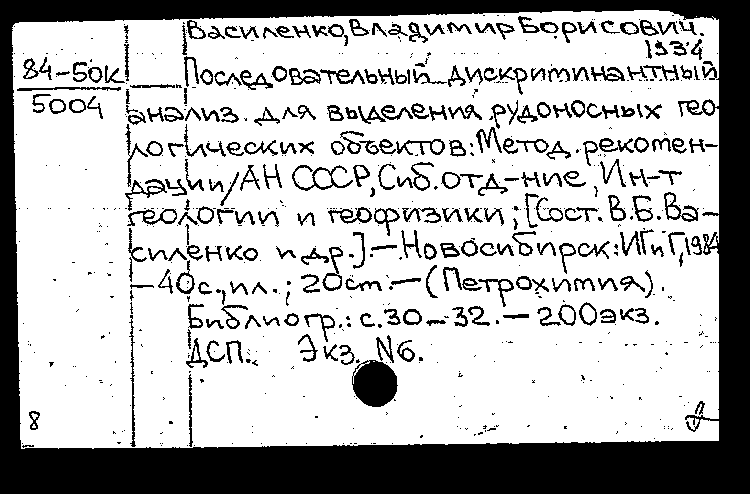 Василенко, Владимир Борисович.
1934
84-50к
5004
Последовательный дискриминантный
анализ для выделения рудоносных гео-
логических объектов: Метод. рекомен-
дации/АН СССР, Сиб. отд-ние, Ин-т
геологии и геофизики; [Сост. В.Б. Ва-
силенко и др.]. — Новосибирск: ИГиГ, 1984
— 40 с., ил.; 20 см. — (Петрохимия).
Библиогр.: с. 30-32. — 200 экз.
ДСП. Экз. N6.
8